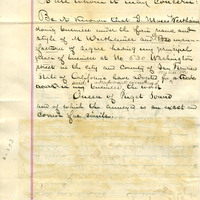 To all whom it may concern:
Be it known that I, Moses Wertheimer
doing business under the firm name and
style of M Wertheimer and Co. manu-
facturer of cigars having my principal
place of business at No 530 Washington
street in the city and County of San Francisco
State of California have adopted for a trade
mark in my business, the words
Queen of Puget Sound
and of which the annexed is an exact and
correct fac simile.